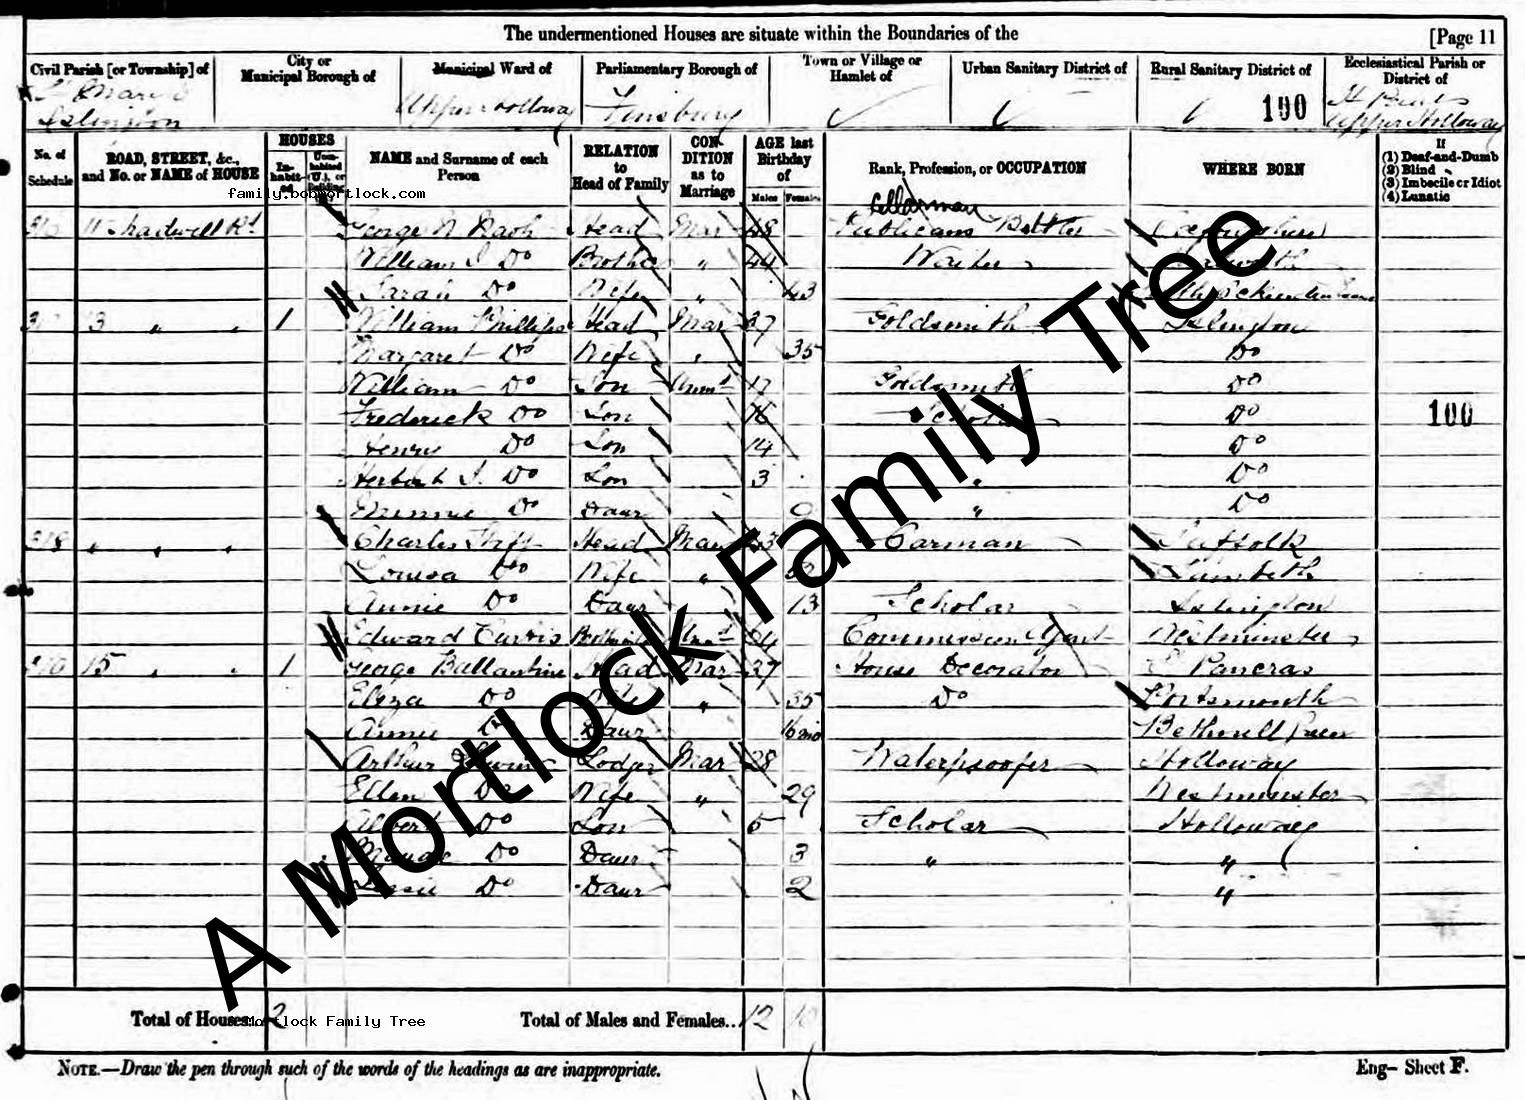 The undermentioned Houses are situate within the Boundaries of the [Page 11
Civil Parish [or Township] of
City or Municipal Borough of
Municipal Ward of
Parliamentary Borough of
Town or Village or Hamlet of
Urban Sanitary District of
Rural Sanitary District of
Ecclesiastical Parish or District of
Islington
Upper Holloway
Finsbury
100
Upper Holloway
No. of Schedule
ROAD, STREET, &c., and No. or NAME of HOUSE
HOUSES
In-habit-ed
Unin-habited (U.), or Building
NAME and Surname of each Person
RELATION to Head of Family
CON-DITION as to Marriage
AGE last Birthday of
Males
Females
Rank, Profession, or OCCUPATION
WHERE BORN
If
(1) Deaf-and-Dumb
(2) Blind
(3) Imbecile or Idiot
(4) Lunatic
family.bobmortlock.com
Cellarman
11 Rd George N Head Mar 48 Publicans
William J Do Brother " 44 Waiter
Sarah Do Wife " 43
13 " " 1 William Phillips Head Mar 37 Goldsmith Islington
Margaret Do Wife " 35 Do
William Do Son Unmd 17 Goldsmith Do
Frederick Do Son 16 Do
Henry Do Son 14 Do
Herbert J. Do Son 3 " Do
Minnie Do Daur " Do
318 " " " Charles Head Mar Carman Suffolk
Louisa Do Wife " Lambeth
Annie Do Daur 13 Scholar Islington
Edward Curtis Unmd Commission Agent Westminster
15 " " 1 George Ballantine Head Mar 37 House Decorator St Pancras
Eliza Do Wife " 35 Do Portsmouth
Annie Do Daur 6 mo Bethnell Green
Arthur Lodger Mar 28 Waterproofer Holloway
Ellen Do Wife " 29 Westminster
Albert Do Son 5 Scholar Holloway
Maude Do Daur 3 " "
Do Daur 2 "
100
A Mortlock Family Tree
Total of Houses.. 2
A Mortlock Family Tree
Total of Males and Females.. 12 10
NOTE.—Draw the pen through such of the words of the headings as are inappropriate.
Eng– Sheet F.